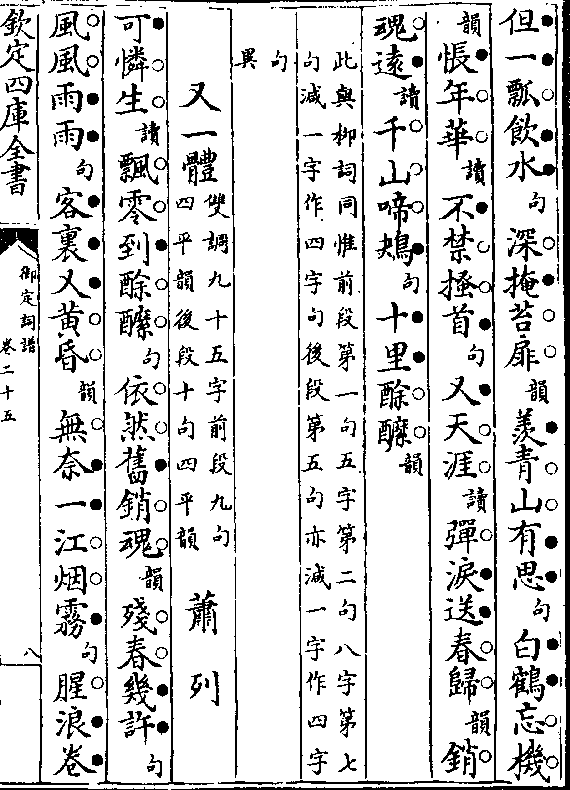 但一瓢飲水句深掩苔扉韻羨青山有思句白鶴忘機
韻悵年華讀不禁搔首句又天涯讀彈淚送春歸韻銷
魂遠讀千山啼鴂句十里酴醾韻
此與栁詞同惟前段第一句五字第二句八字第七
句減一字作四字句後段第五句亦減一字作四字
句
異
又一體雙調九十五字前段九句
四平韻後段十句四平韻 蕭列
可憐生讀飄零到酴醾句依然舊銷魂韻殘春幾許句
風風雨雨句客裏又黃昏韻無奈一江烟霧句腥浪卷
欽定四庫全書
御定詞譜
卷二十五
八